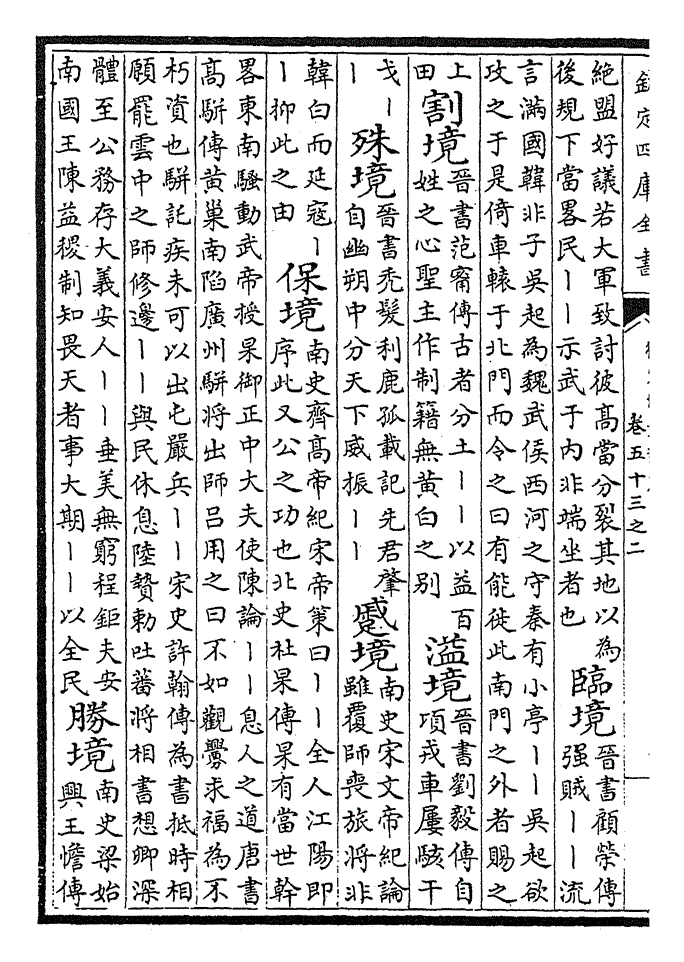 欽定四庫全書
卷五十三之二
絶盟好議若大軍致討彼髙當分裂其地以為
後規下當畧民——示武于内非端坐者也
臨境
晉書顧榮傳
强賊——流
言滿國韓非子吳起為魏武侯西河之守秦有小亭——吳起欲
攻之于是倚車轅于北門而令之曰有能徙此南門之外者賜之
上
田
割境
晉書范甯傳古者分土——以益百
姓之心聖主作制籍無黄白之别
溢境
晉書劉毅傳自
項戎車屢駭干
戈—
—
殊境
晉書禿髮利鹿孤載記先君肇
自幽朔中分天下威振——
蹙境
南史宋文帝紀論
雖覆師喪旅將非
韓白而延寇—
—抑此之由
保境
南史齊髙帝紀宋帝策曰——全人江陽即
序此又公之功也北史杜杲傳杲有當世幹
畧東南騷動武帝授杲御正中大夫使陳論——息人之道唐書
髙駢傳黄巢南陷廣州駢將出師吕用之曰不如觀釁求福為不
朽資也駢託疾未可以出屯嚴兵——宋史許翰傳為書抵時相
願罷雲中之師修邊——與民休息陸贄勅吐蕃將相書想卿深
體至公務存大義安人——垂美無窮程鉅夫安
南國王陳益稷制知畏天者事大期——以全民
勝境
南史梁始
興王憺傳